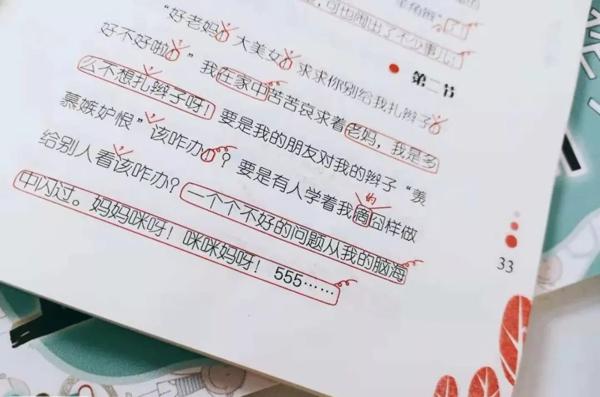 可也闹出了不少事儿！
第二节
“好老妈 大美女 求求你别给我扎辫子
好不好啦 ” 我在家中苦苦哀求着老妈，我是多
么不想扎辫子呀！要是我的朋友对我的辫子“羡
慕嫉妒恨”该咋办？要是有人学着我的囧样做
给别人看该咋办？一个个不好的问题从我的脑海
中闪过。妈妈咪呀！咪咪妈呀！555……
33